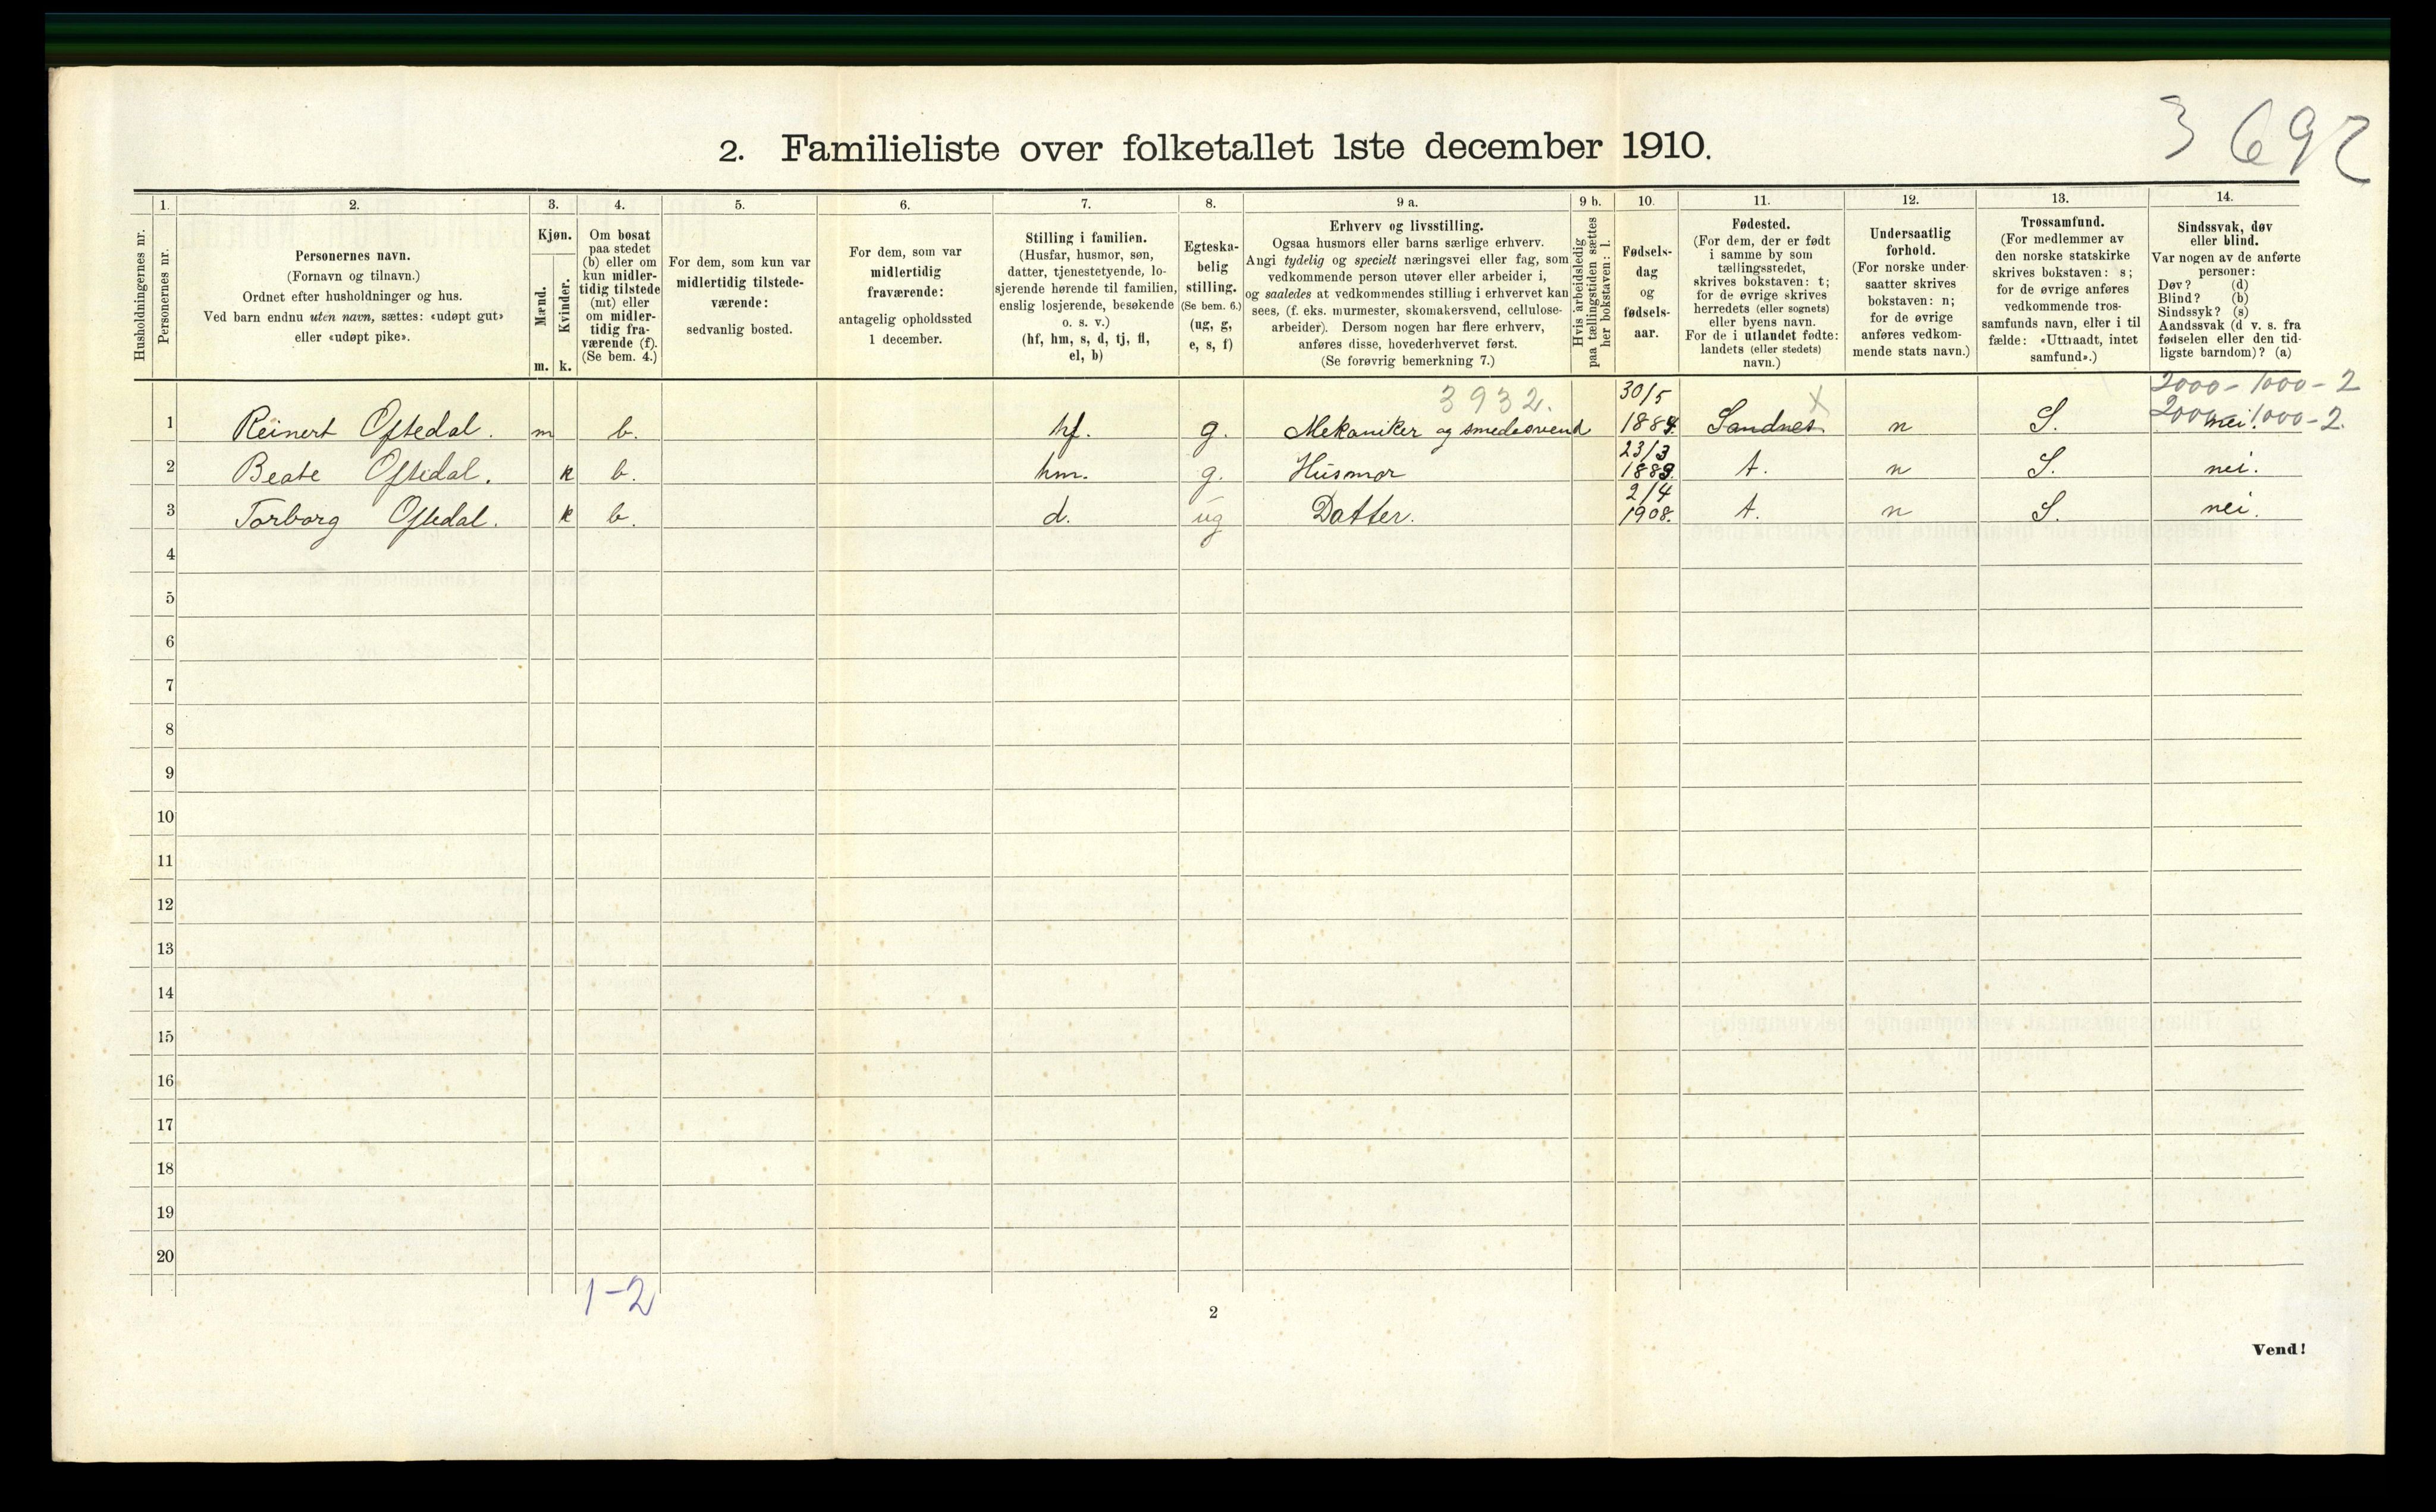 3 692
2. Familieliste over folketallet 1ste december 1910.
Husholdningernes nr.
1.
Personernes nr.
2.
Personernes navn.
(Fornavn og tilnavn.)
Ordnet efter husholdninger og hus.
Ved barn endnu uten navn, sættes: «udøpt gut»
eller «udøpt pike».
3.
Kjøn.
Mænd.
Kvinder.
m. k.
4.
Om bosat
paa stedet
(b) eller om
kun midler-
tidig tilstede
(mt) eller
om midler-
tidig fra-
værende (f).
(Se bem. 4.)
5.
For dem, som kun var
midlertidig tilstede-
værende:
sedvanlig bosted.
6.
For dem, som var
midlertidig
fraværende:
antagelig opholdssted
1 december.
7.
Stilling i familien.
(Husfar, husmor, søn,
datter, tjenestetyende, lo-
sjerende hørende til familien,
enslig losjerende, besøkende
o. s. v.)
(hf, hm, s, d, tj, fl,
el, b)
8.
Egteska-
belig
stilling.
(Se bem. 6.)
(ug, g,
e, s, f)
9 a.
Erhverv og livsstilling.
Ogsaa husmors eller barns særlige erhverv.
Angi tydelig og specielt næringsvei eller fag, som
vedkommende person utøver eller arbeider i,
og saaledes at vedkommendes stilling i erhvervet kan
sees, (f. eks. murmester, skomakersvend, cellulose-
arbeider). Dersom nogen har flere erhverv,
anføres disse, hovederhvervet først.
(Se forøvrig bemerkning 7.)
9 b.
Hvis arbeidsledig
paa tællingstiden sættes
her bokstaven: l.
10.
Fødsels-
dag
og
fødsels-
aar.
11.
Fødested.
(For dem, der er født
i samme by som
tællingsstedet,
skrives bokstaven: t;
for de øvrige skrives
herredets (eller sognets)
eller byens navn.
For de i utlandet fødte:
landets (eller stedets)
navn.)
12.
Undersaatlig
forhold.
(For norske under-
saatter skrives
bokstaven: n;
for de øvrige
anføres vedkom-
mende stats navn.)
13.
Trossamfund.
(For medlemmer av
den norske statskirke
skrives bokstaven: s;
for de øvrige anføres
vedkommende tros-
samfunds navn, eller i til
fælde: «Uttraadt, intet
samfund».)
14.
Sindssvak, døv
eller blind.
Var nogen av de anførte
personer:
Døv? (d)
Blind? (b)
Sindssyk? (s)
Aandssvak (d v. s. fra
fødselen eller den tid-
ligste barndom)? (a)
3932. 30/5 X 2000 - 1000 - 2
1 Reinert Oftedal. m b. hf. g. Mekaniker og smedesvend 1884. Sandnes n S. nei. 2000 1000 - 2.
23/3
2 Beate Oftedal. k b. hm. g. Husmor 1883. t. n S. nei.
2/4
3 Torborg Oftedal. k b. d. ug Datter. 1908. t. n S. nei.
4
5
6
7
8
9
10
11
12
13
14
15
16
17
18
19
20
1-2
2
Vend!